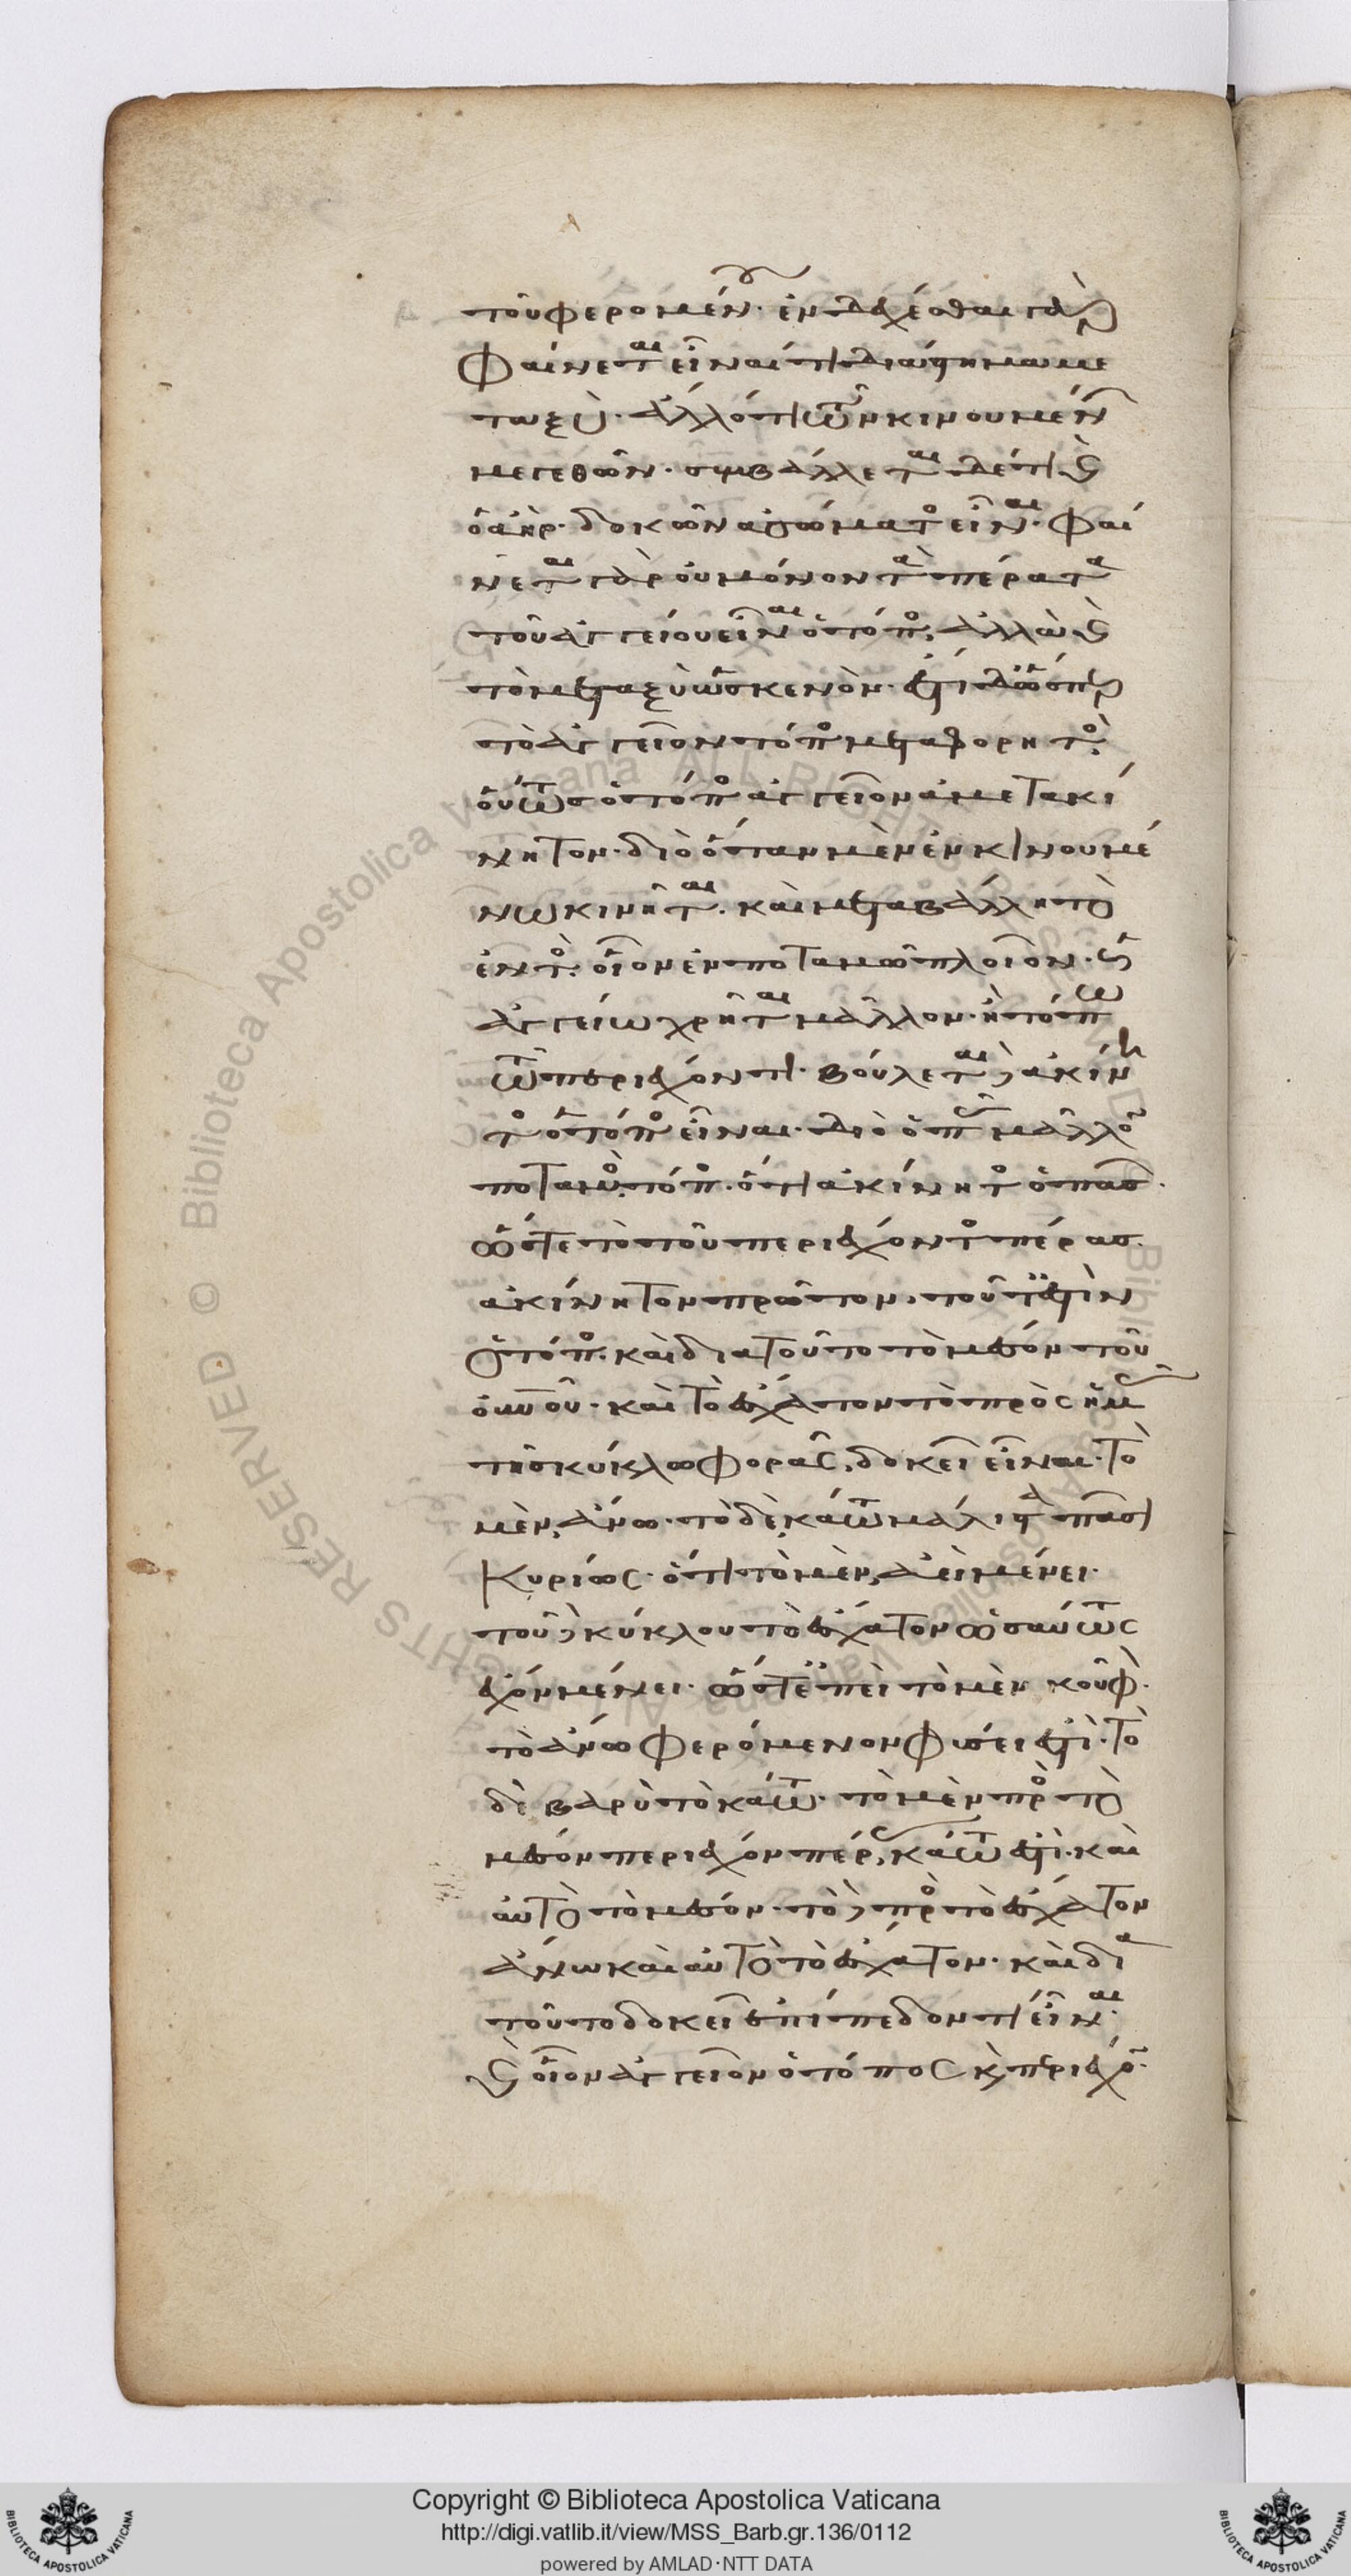 τοῦ φερομένου· ἐνδέχεσθαι γὰρ
φαίνεται εἶναί τι διάστημα με
ταξὺ· ἄλλό τι τῶν κινουμένων
μεγεθῶν· συμβάλλεται δέ τι καὶ
ὁ ἀὴρ· δοκῶν ἀσώματος εἶναι· φαί
νεται γὰρ οὐ μόνον τὰ πέρατα
τοῦ ἀγγείου εἶναι ὁ τόπος, ἀλλὰ καὶ
τὸ μεταξὺ ὡς κενὸν· ἔστι δ' ὥσπερ
τὸ ἀγγεῖον τόπος μεταφορητός·
οὕτως ὁ τόπος ἀγγεῖον ἀμετακί
νητον· διὸ ὅταν μὲν ἐν κινουμέ
νω κινῆται· καὶ μεταβάλλη τὸ
ἐντός· οἷον ἐν ποταμῶ πλοῖον· ὡς
ἀγγείω χρῆται μᾶλλον· ἢ τόπω
τῶ περιέχοντι· βούλεται δὲ ἀκίνη
τος ὁ τόπος εἶναι· διὸ ὁ πᾶς μᾶλλον
ποταμὸς τόπος· ὅτι ἀκίνητος ὁ πᾶς·
ὥστε τὸ τοῦ περιέχοντος πέρας·
ἀκίνητον πρῶτον, τοῦτ' ἔστιν
ὁ τόπος· καὶ διατοῦτο τὸ μέσον τοῦ
οὐνοῦ· καὶ τὸ ἔσχατον τὸ πρὸς ἡμᾶς
τῆς κύκλω φορᾶς, δοκεῖ εἶναι· τὸ
μὲν, ἄνω· τὸ δὲ, κάτω μάλιστα πᾶσι
κυρίως· ὅτι τὸ μὲν, ἀεὶ μένει·
τοῦ δὲ κύκλου τὸ ἔσχατον ὡσαύτως
ἔχον μένει· ὥστ' ἐπεὶ τὸ μὲν κοῦφον·
τὸ ἄνω φερόμενον φύσει ἐστὶ· τὸ
δὲ βαρὺ τὸ κάτω· τὸ μὲν πρὸς τὸ
μέσον περιέχον πέρας, κάτω ἐστὶ· καὶ
αὐτὸ τὸ μέσον· τὸ δὲ πρὸς τὸ ἔσχατον
ἄνω καὶ αὐτὸ τὸ ἔσχατον· καὶ διὰ
τοῦτο δοκεῖ ἐπίπεδόν τι εἶναι·
καὶ οἷον ἀγγεῖον ὁ τόπος καὶ περιέχον·
© Biblioteca Apostolica Vaticana ALL RIGHTS RESERVED
Copyright © Biblioteca Apostolica Vaticana
http://digi.vatlib.it/view/MSS_Barb.gr.136/0112
powered by AMLAD·NTT DATA
BIBLIOTECA APOSTOLICA VATICANA
BIBLIOTECA APOSTOLICA VATICANA